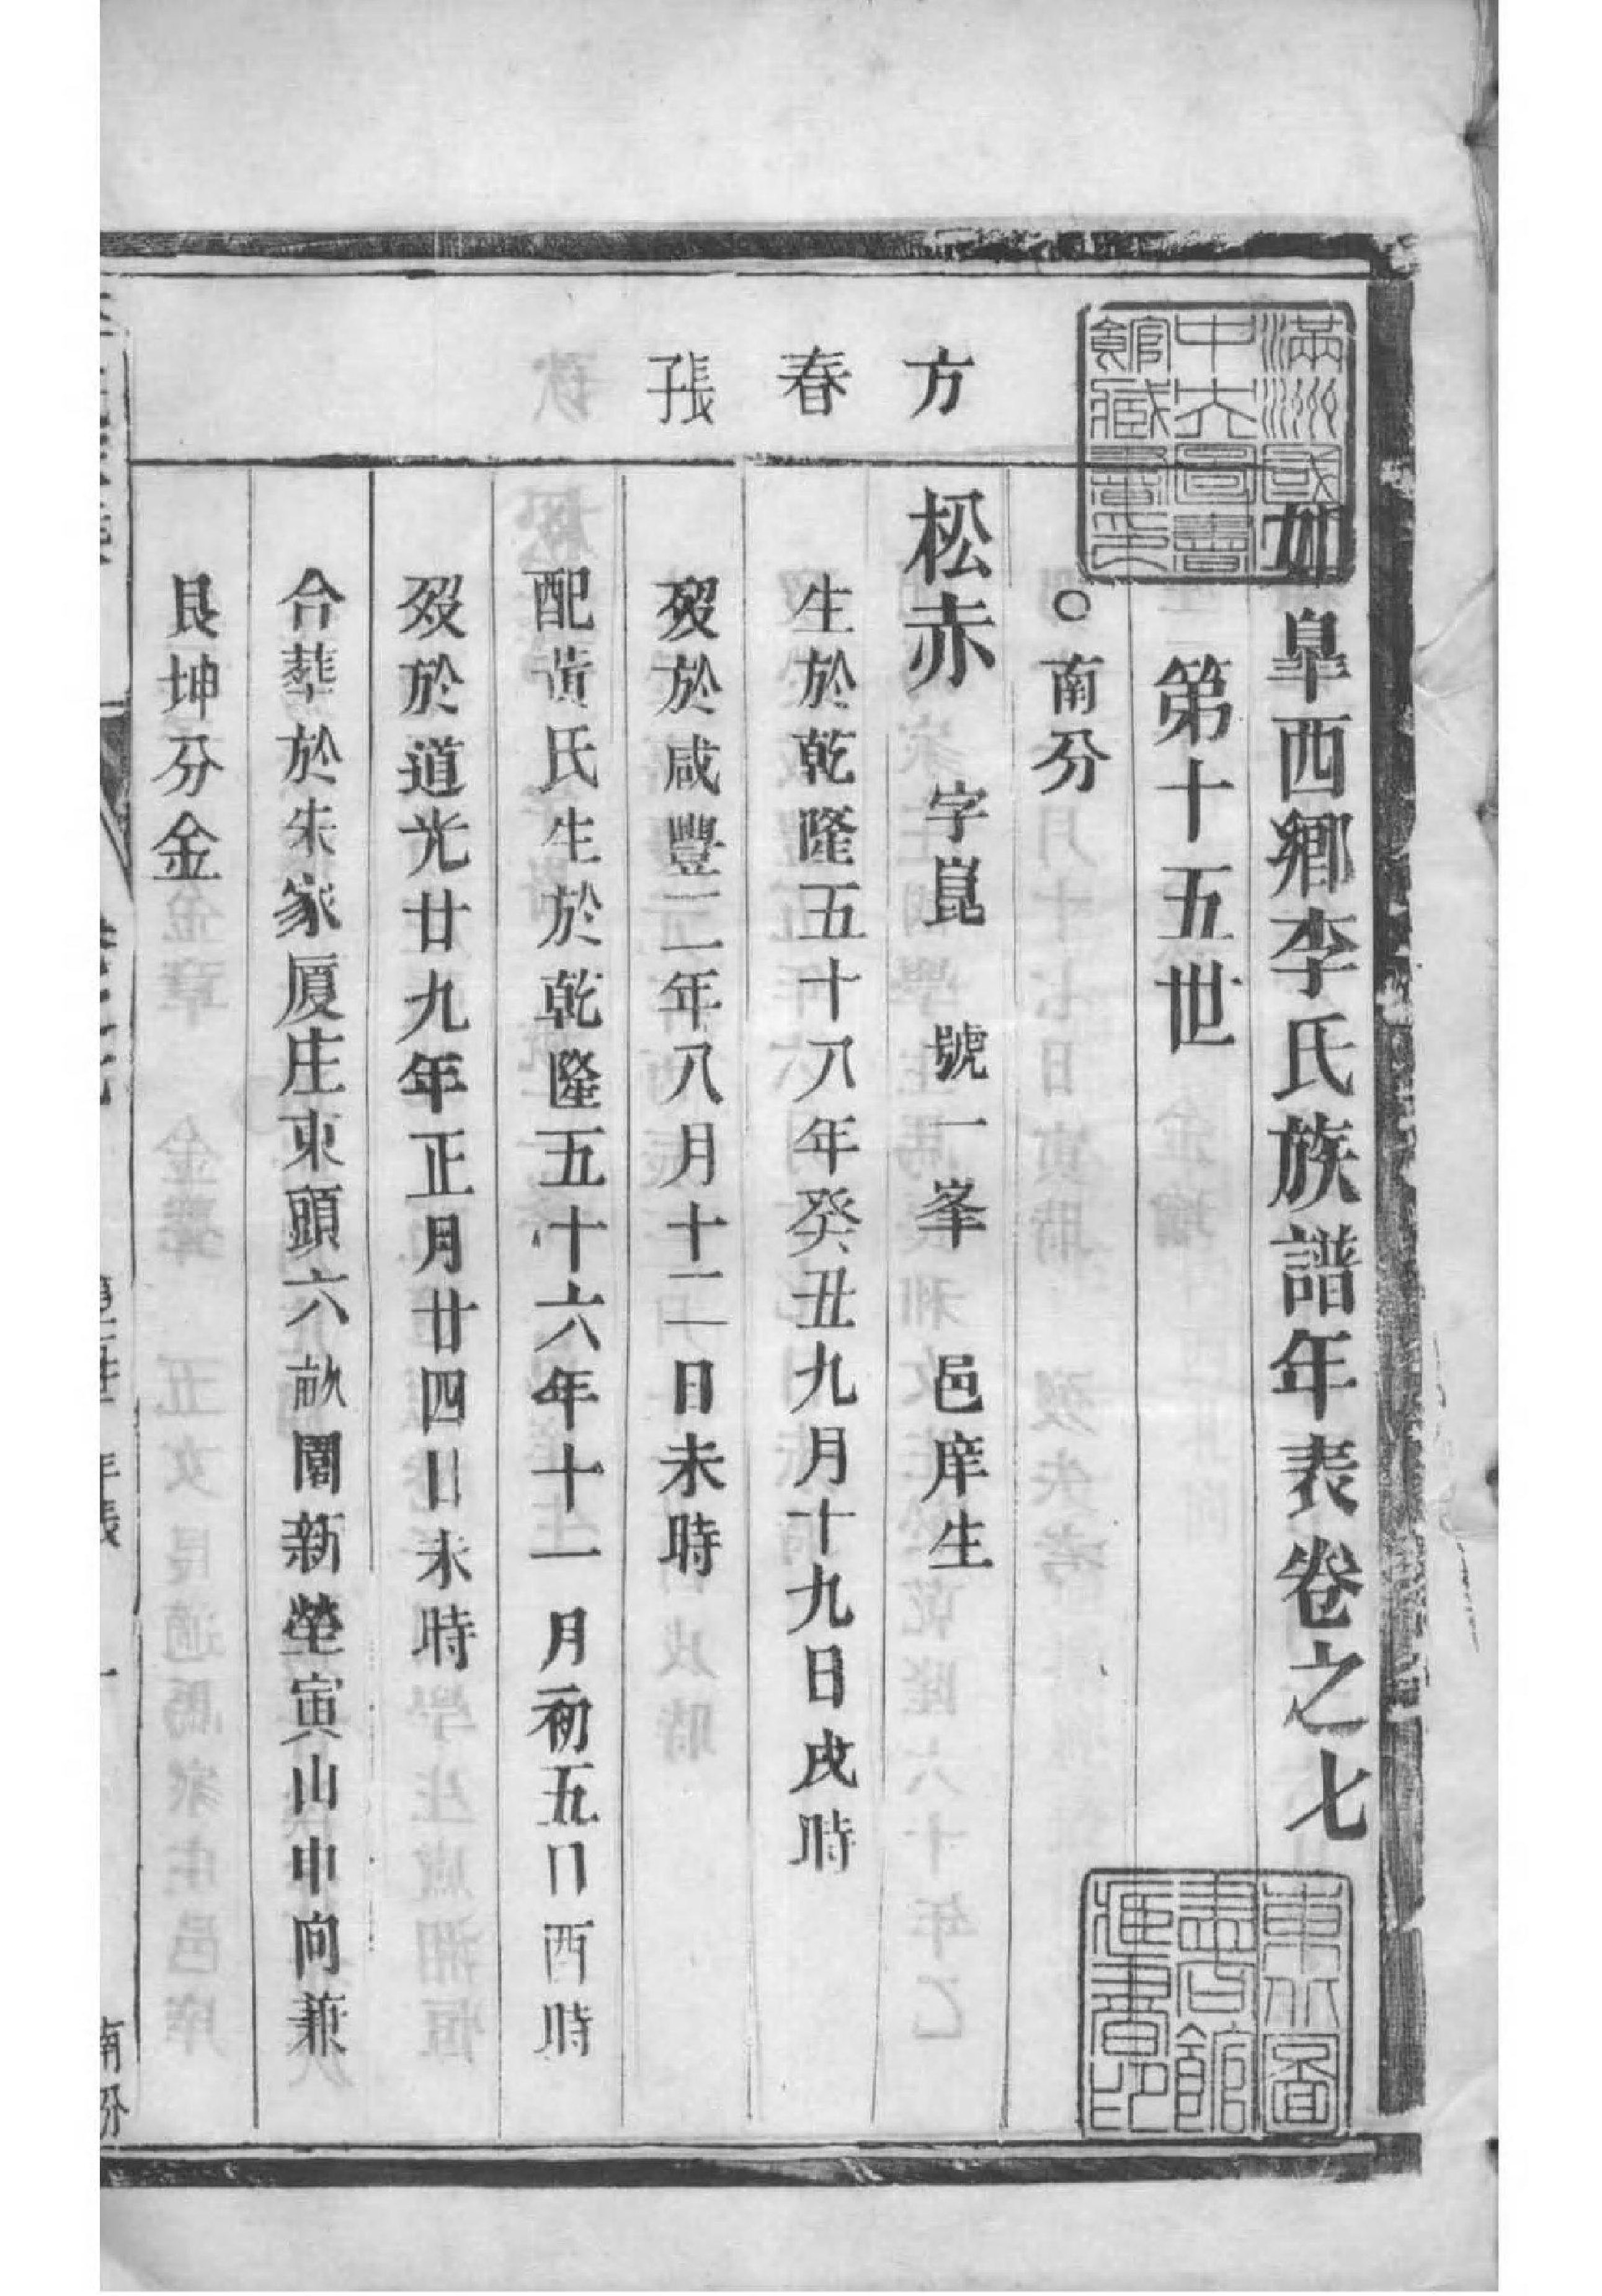 如皐西鄉李氏族譜年表卷之七
第十五世
○南分
方春張
松赤 字崑 號一峯 邑庠生
生於乾隆五十八年癸丑九月十九日戌時
歿於咸豐二年八月十二日未時
配黃氏生於乾隆五十六年十一月初五日酉時
歿於道光廿九年正月廿四日未時
合葬於朱家厦庄東頭六畝闊新塋寅山申向兼
艮坤分金
滿洲國
中央圖書
館藏書印
東北圖
書館
藏書印